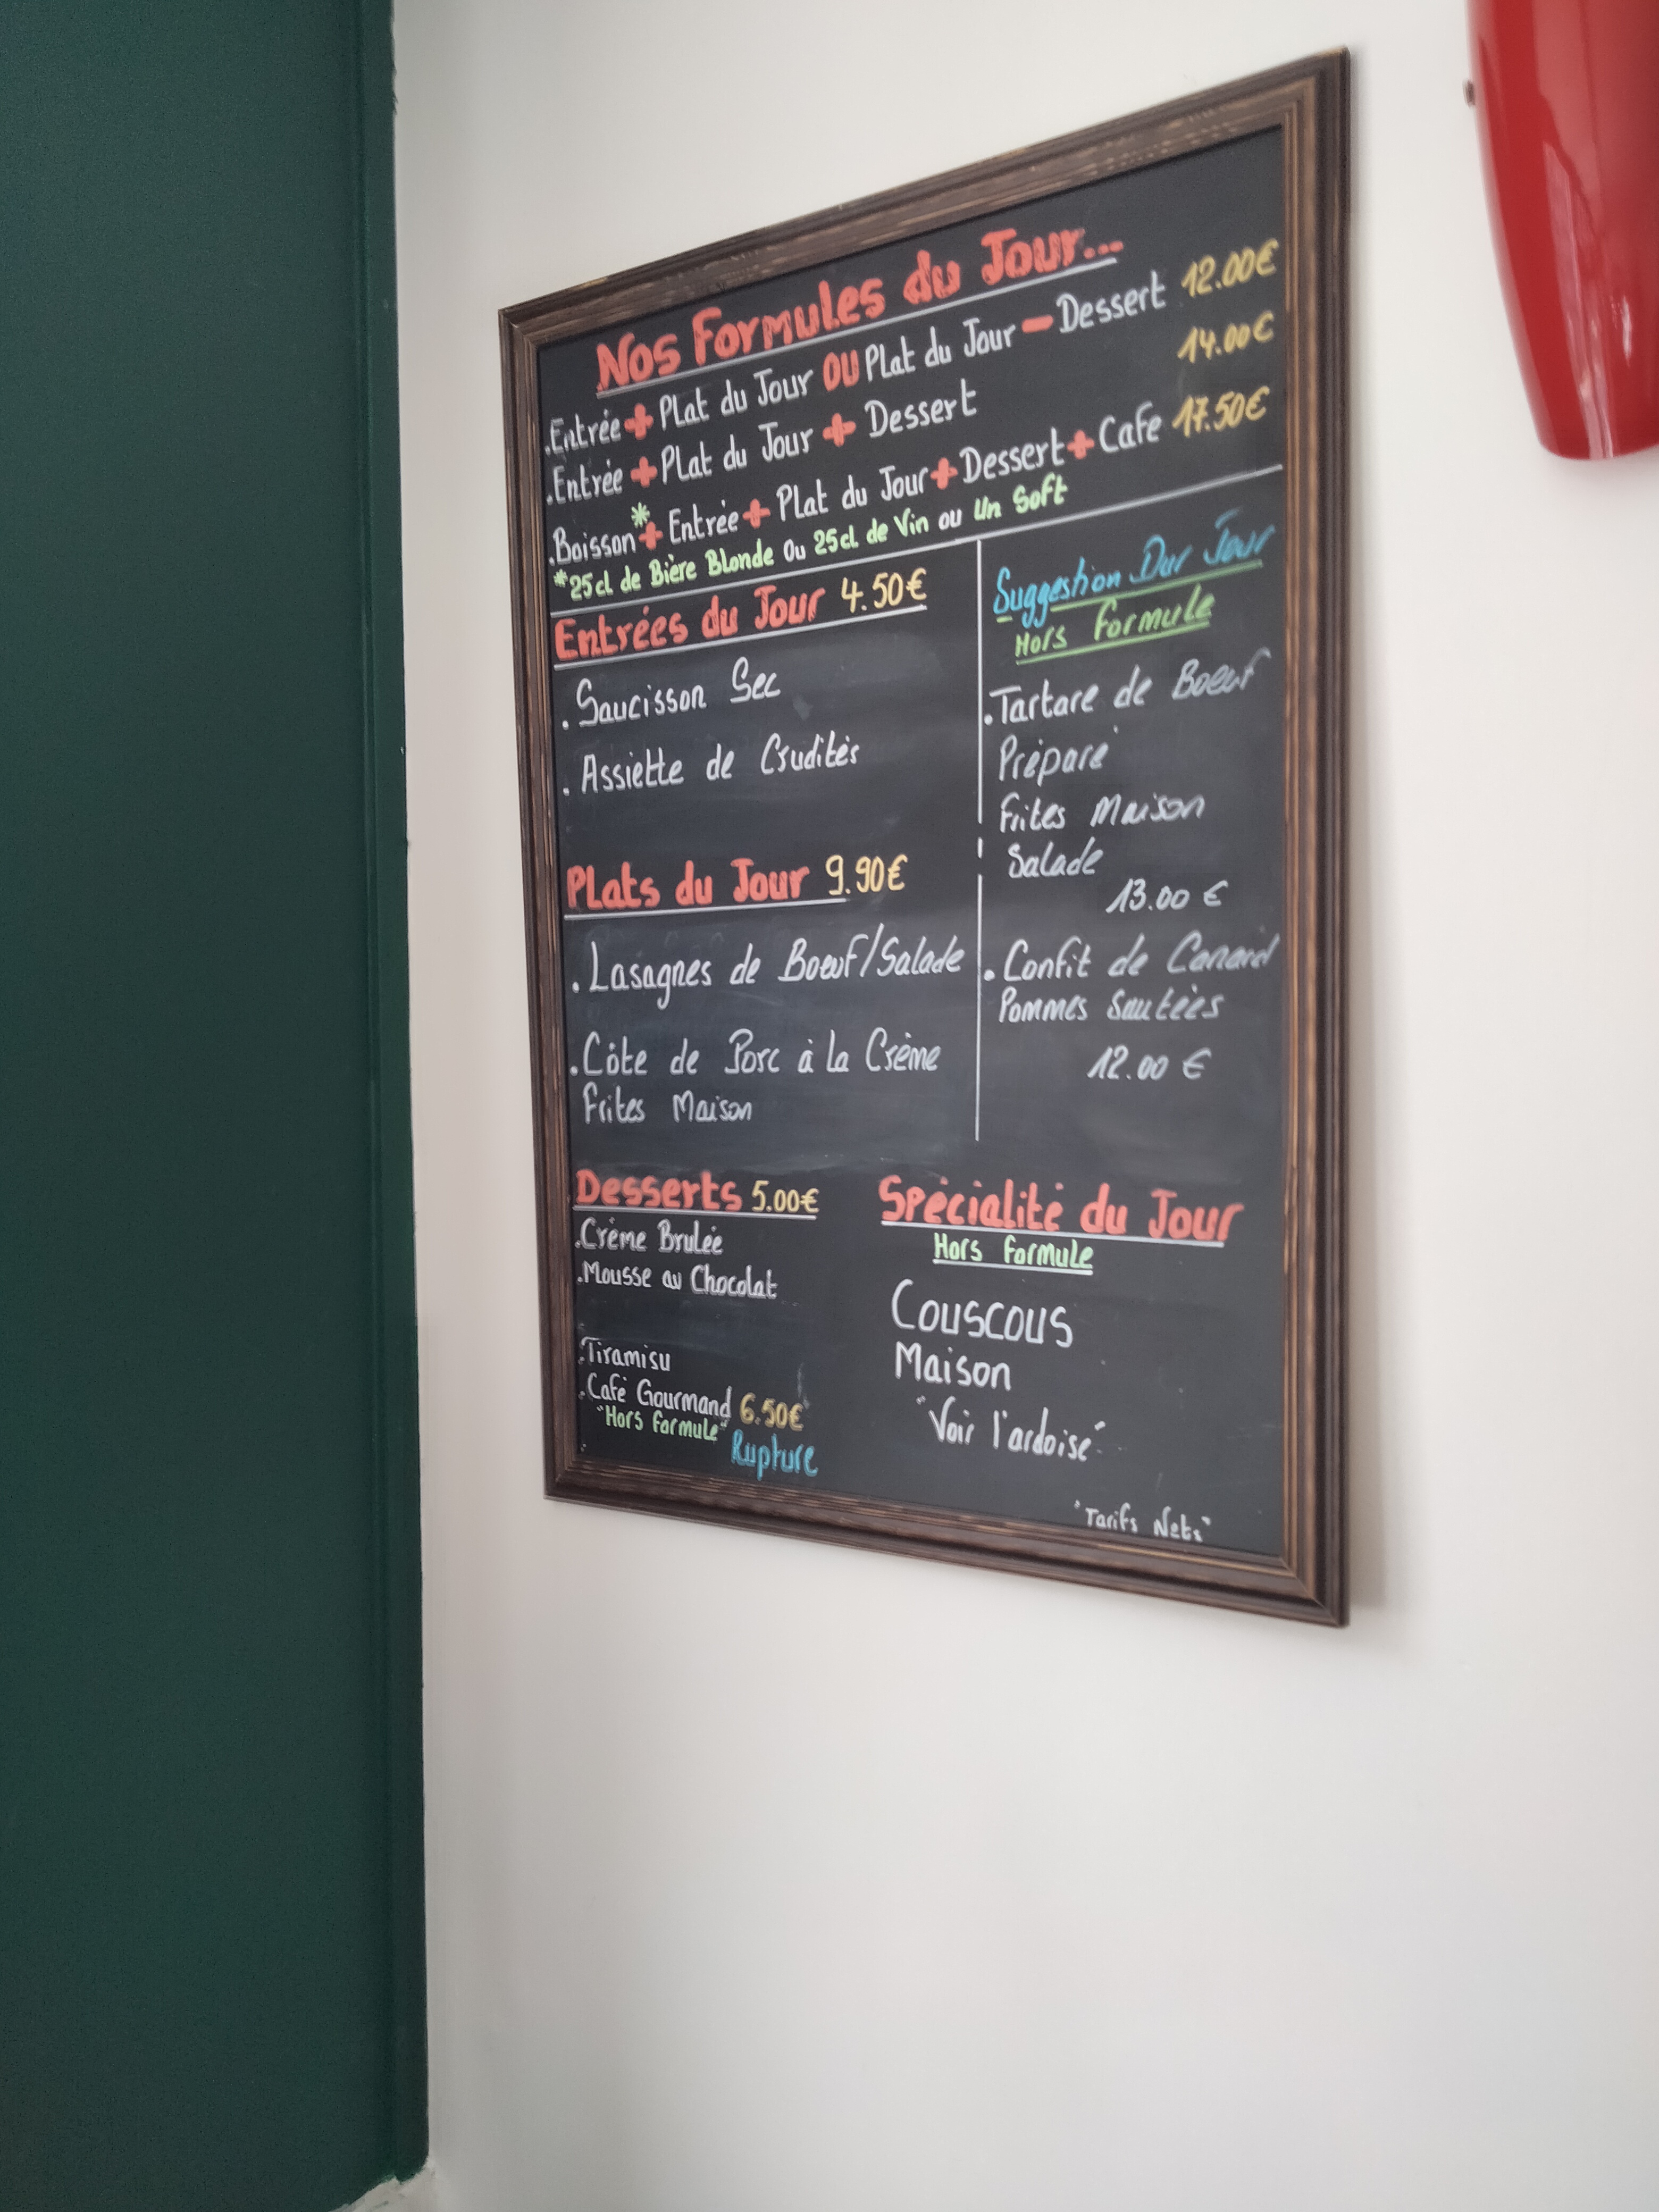 Nos Formules du Jour...
.Entrée + Plat du Jour OU Plat du Jour - Dessert 12.00€
.Entrée + Plat du Jour + Dessert 14.00€
.Boisson* + Entrée + Plat du Jour + Dessert + Cafe 17.50€
*25cl de Bière Blonde Ou 25cl de Vin ou Un Soft
Entrées du Jour 4.50€
. Saucisson Sec
. Assiette de Crudités
Plats du Jour 9.90€
. Lasagnes de Boeuf/Salade
. Côte de Porc à la Crème
Frites Maison
Suggestion Dur Jour
Hors Formule
. Tartare de Boeuf
Préparé
Frites Maison
Salade
13.00 €
. Confit de Canard
Pommes Sautées
12.00 €
Desserts 5.00€
.Crème Brulée
.Mousse au Chocolat
.Tiramisu
.Café Gourmand 6.50€
"Hors Formule"
Rupture
Spécialité du Jour
Hors Formule
Couscous
Maison
"Voir l'ardoise"
"Tarifs Nets"